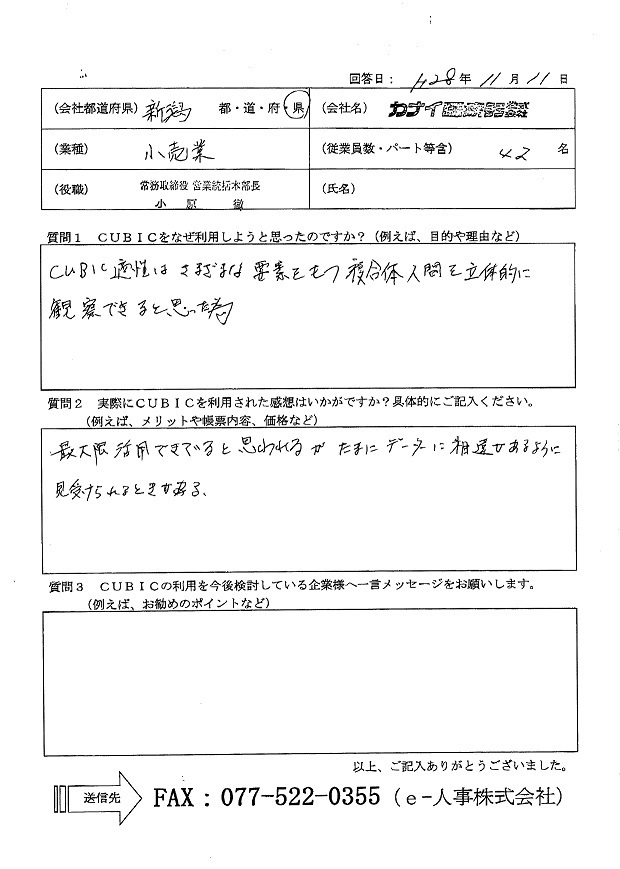 回答日： H28年 11月 11日
（会社都道府県） 新潟 都・道・府・県 （会社名） カナイ
（業種） 小売業 （従業員数・パート等含） 42 名
（役職） 常務取締役 営業統括本部長 （氏名）
小原 徹
質問１ ＣＵＢＩＣをなぜ利用しようと思ったのですか？（例えば、目的や理由など）
CUBIC適性は さまざまな 要素をもつ 複合体人間を立体的に
観察できると、思った為
質問２ 実際にＣＵＢＩＣを利用された感想はいかがですか？具体的にご記入ください。
（例えば、メリットや帳票内容、価格など）
最大限 活用できていると 思われるが たまに データーに 相違があるように
見受けられるときがある、
質問３ ＣＵＢＩＣの利用を今後検討している企業様へ一言メッセージをお願いします。
（例えば、お勧めのポイントなど）
以上、ご記入ありがとうございました。
送信先 FAX：077-522-0355（e-人事株式会社）